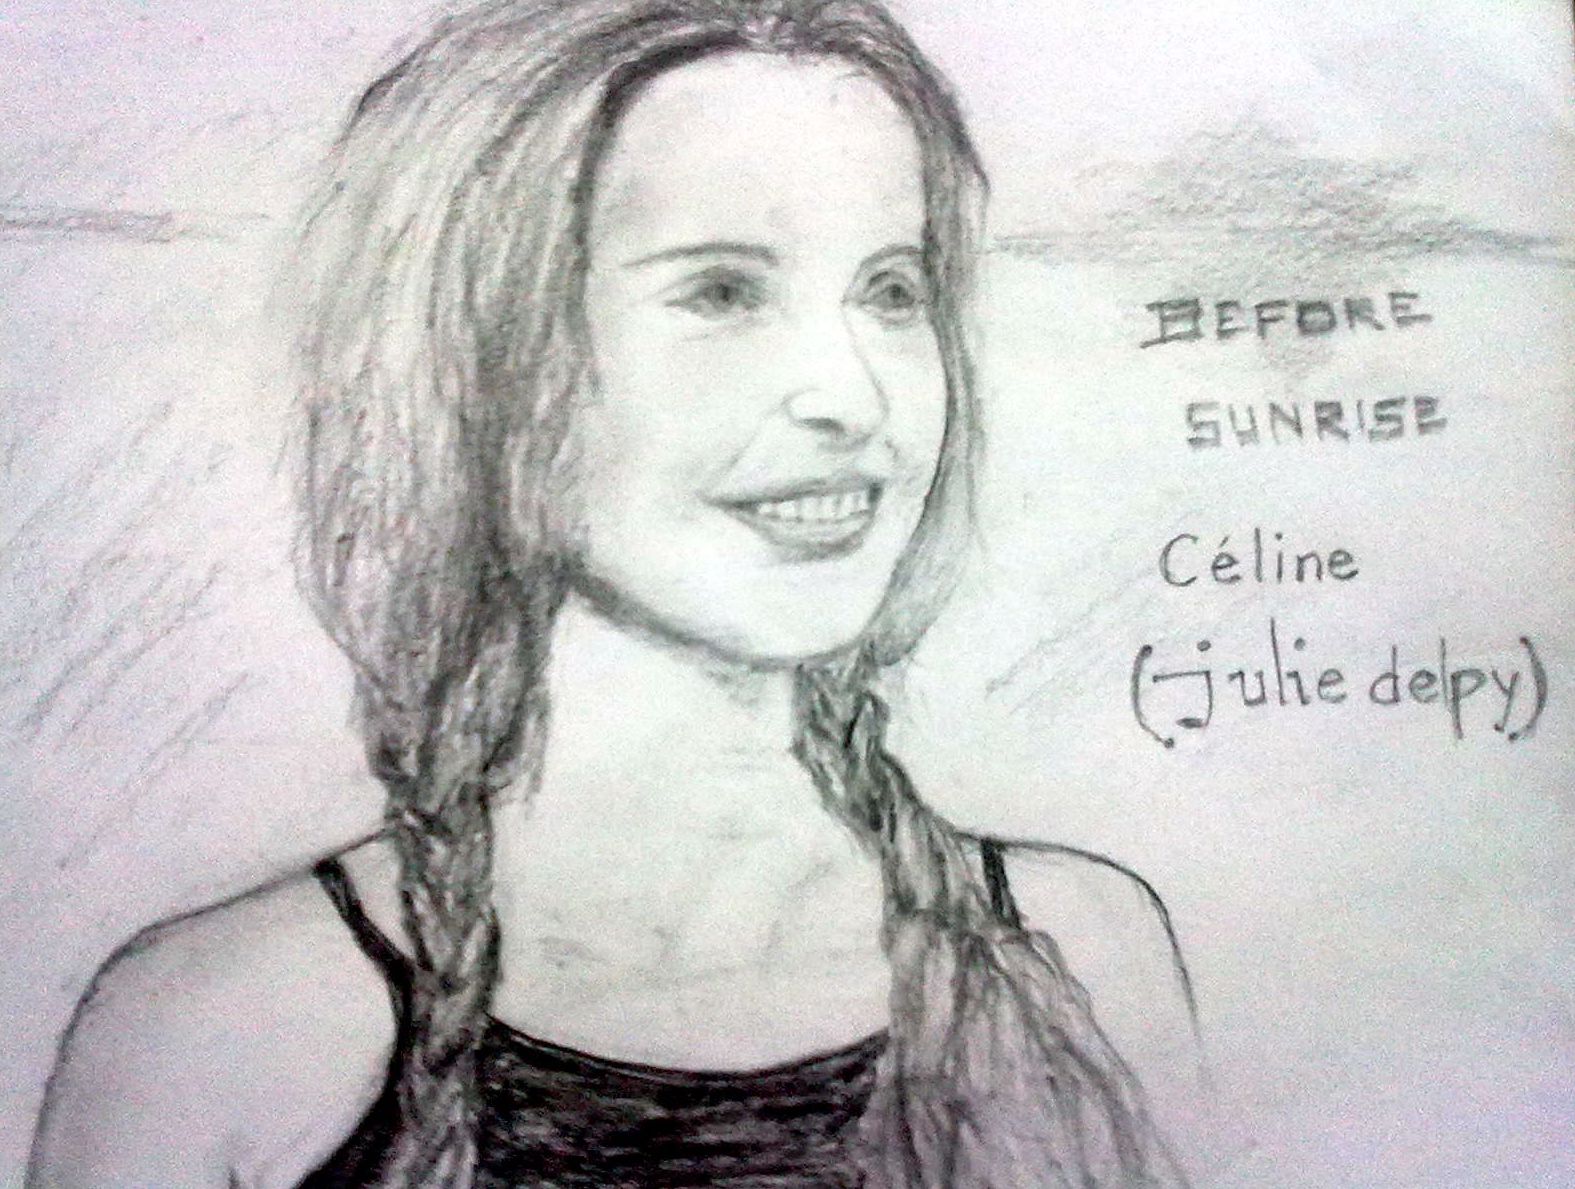 BEFORE
SUNRISE
Céline
(julie delpy)